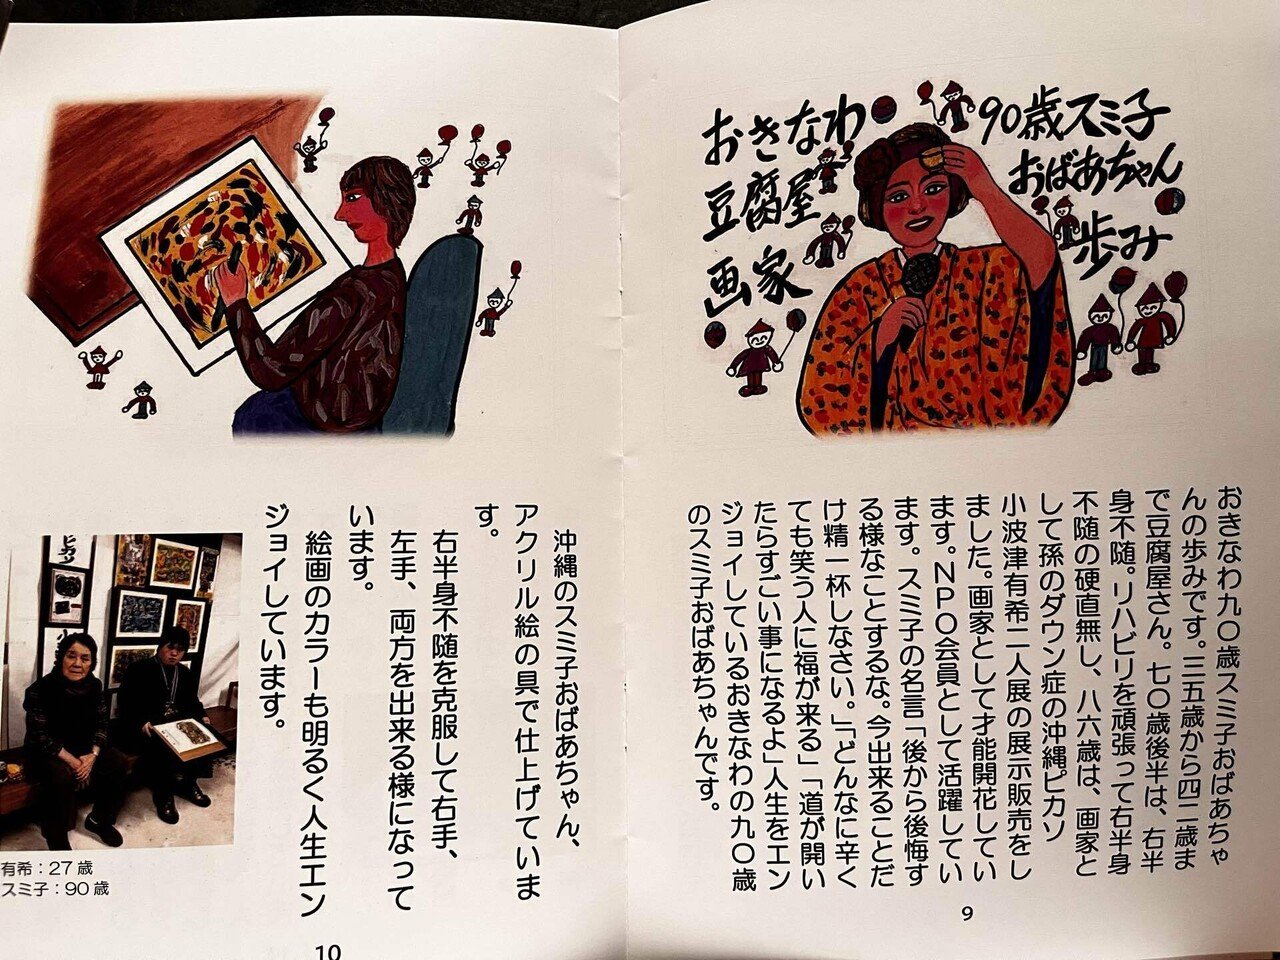 おきなわ
豆腐屋
画家
90歳スミ子
おばあちゃん
歩み
おきなわ九〇歳スミ子おばあちゃ
んの歩みです。三五歳から四二歳ま
で豆腐屋さん。七〇歳後半は、右半
身不随。リハビリを頑張って右半身
不随の硬直無し、八六歳は、画家と
して孫のダウン症の沖縄ピカソ
小波津有希二人展の展示販売をし
ました。画家として才能開花してい
ます。NPO会員として活躍してい
ます。スミ子の名言「後から後悔す
る様なことするな。今出来ることだ
け精一杯しなさい。」「どんなに辛く
ても笑う人に福が来る」「道が開い
たらすごい事になるよ」人生をエン
ジョイしているおきなわの九〇歳
のスミ子おばあちゃんです。
9
沖縄のスミ子おばあちゃん、
アクリル絵の具で仕上げていま
す。
右半身不随を克服して右手、
左手、両方を出来る様になって
います。
絵画のカラーも明るく人生エン
ジョイしています。
有希：27歳
スミ子：90歳
10